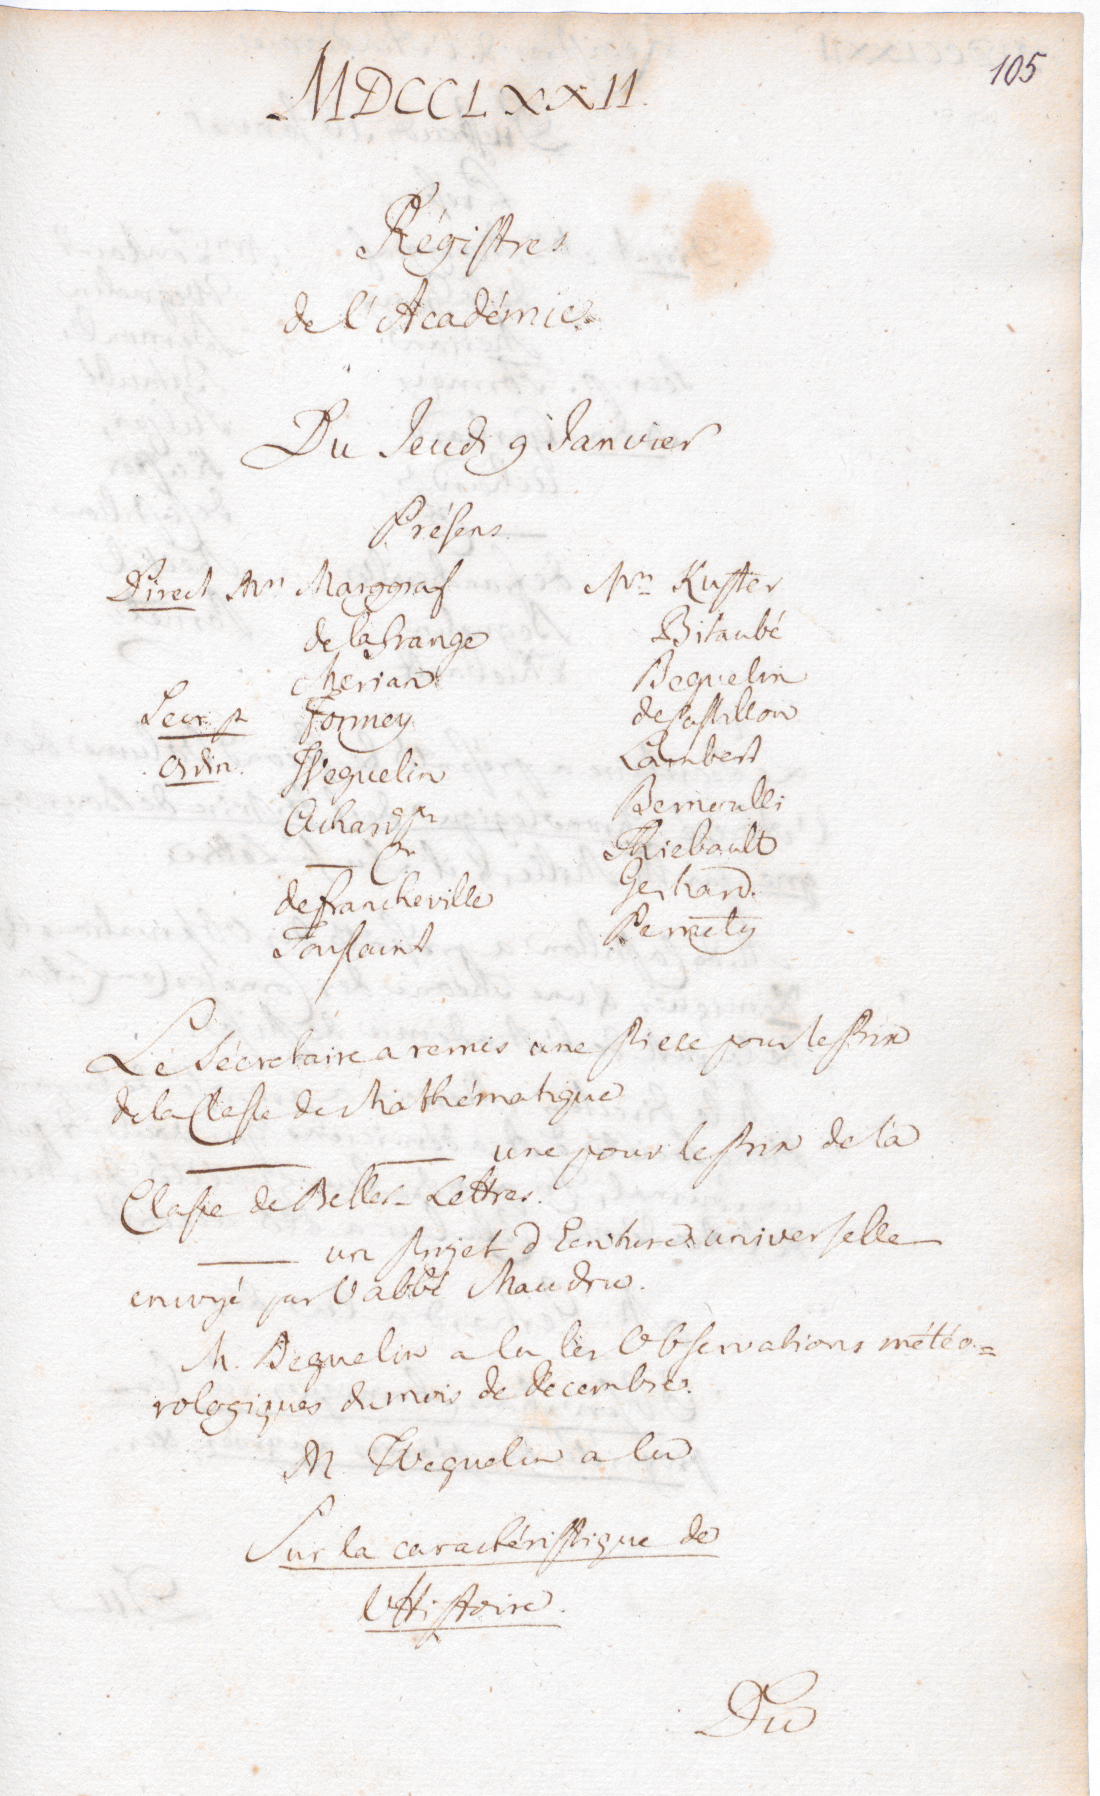 105
MDCCLXXII.
Régistres
de l'Académie
Du Jeudi 9 Janvier
Présens.
Direct. Mrs Marggraf
de la Grange
Merian
Secr. p. Formey
Ordin. Weguelin
Achard
de Francheville
Toussaint
Mrs Kuster
Bitaubé
Beguelin
de Castillon
Lambert
Bernoulli
Thiebault
Gerhard.
Pernety
Le Sécretaire a remis une Piece pour le Prix
de la Classe de Mathématique
une pour le Prix de la
Classe de Belles-Lettres.
un Projet d'Ecriture universelle
envoyé par l'abbé Maudru.
M. Beguelin a lu les Observations météo=
rologiques du mois de Decembre.
M. Weguelin a lu
Sur la caractéristique de
l'Histoire.
Du